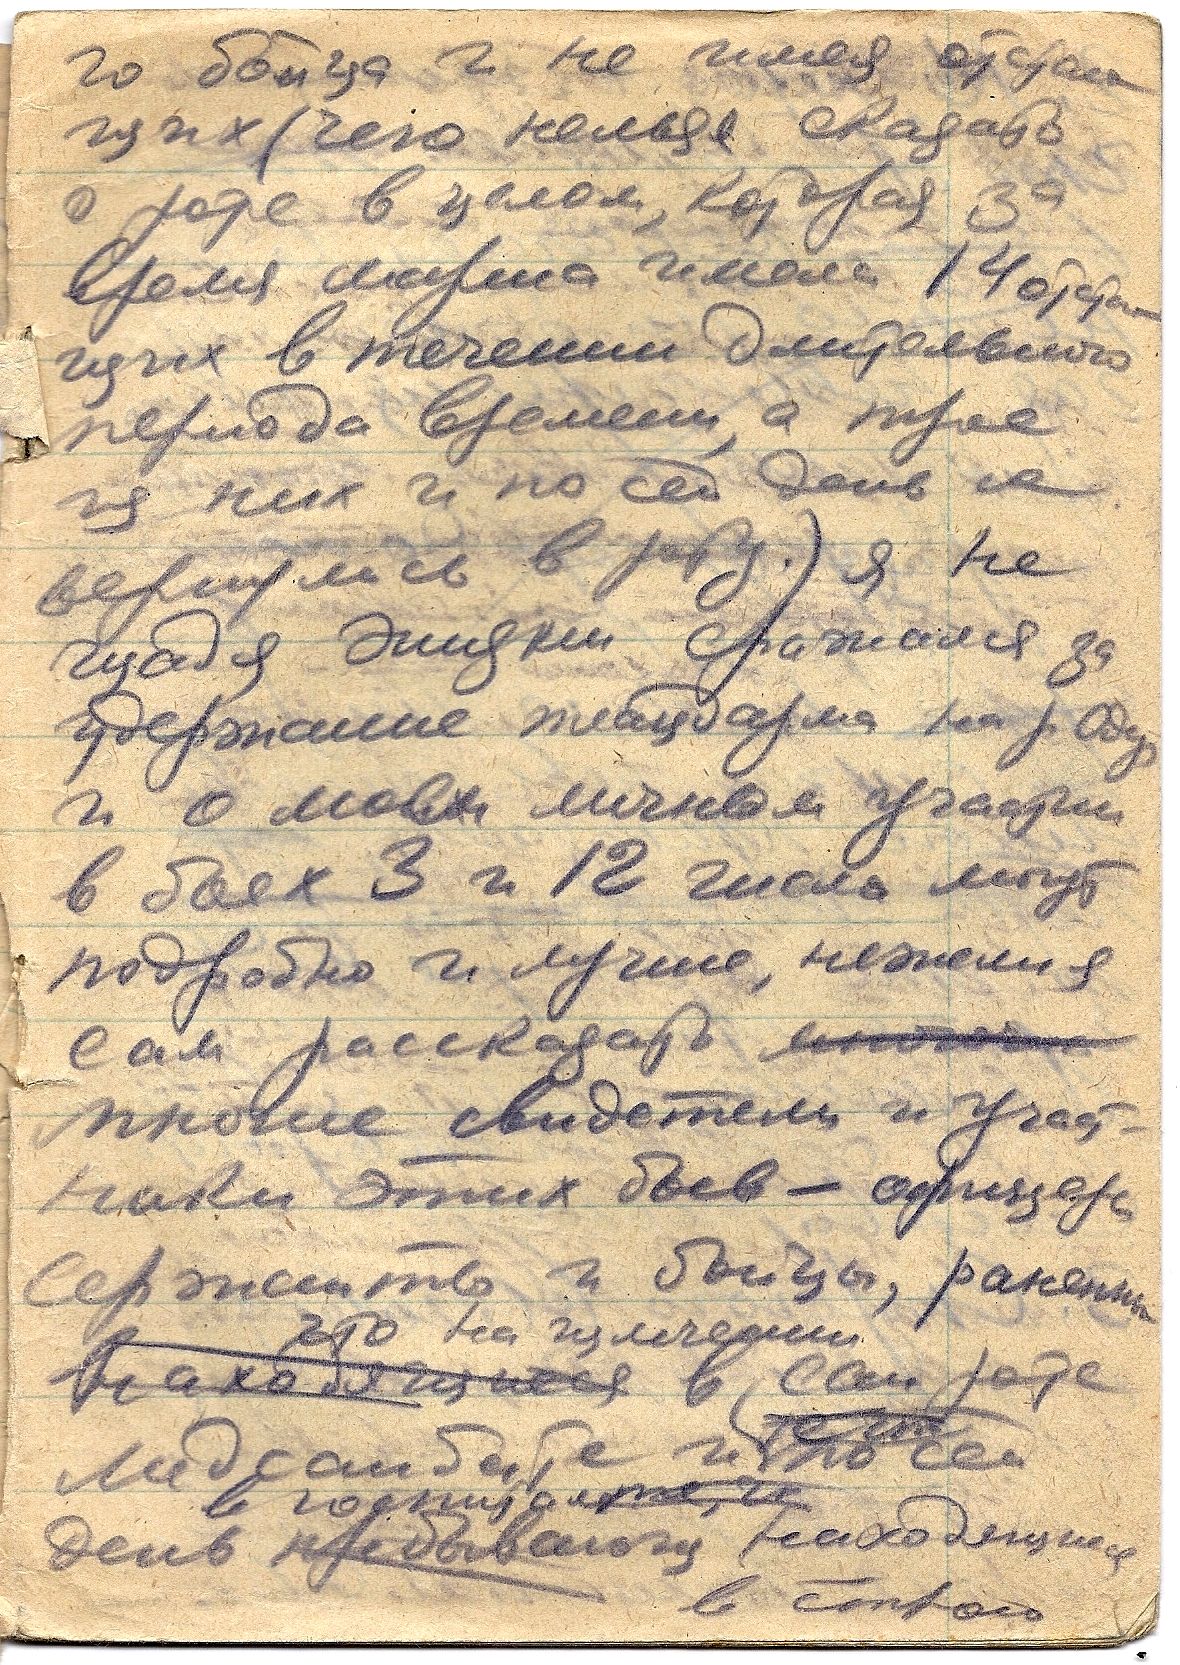 го бойца и не имея отстаю
щих (чего нельзя сказать
о роте в целом, которая за
время марша имела 14 отстаю
щих в течении длительного
периода времени, а трое
из них и по сей день не
вернулись в роту.) я не
щадя жизни сражался за
удержание плацдарма на р Одер
и о моем личном участии
в боях 3 и 12 числа могут
подробно и лучше, нежели я
сам рассказать многие
многие свидетели и участ-
ники этих боев – офицеры
сержанты и бойцы, раненные
кто на излечении
находящиеся в сан роте
медсанбате и по сей
в госпиталях
день пребывающ находящиеся
в строю